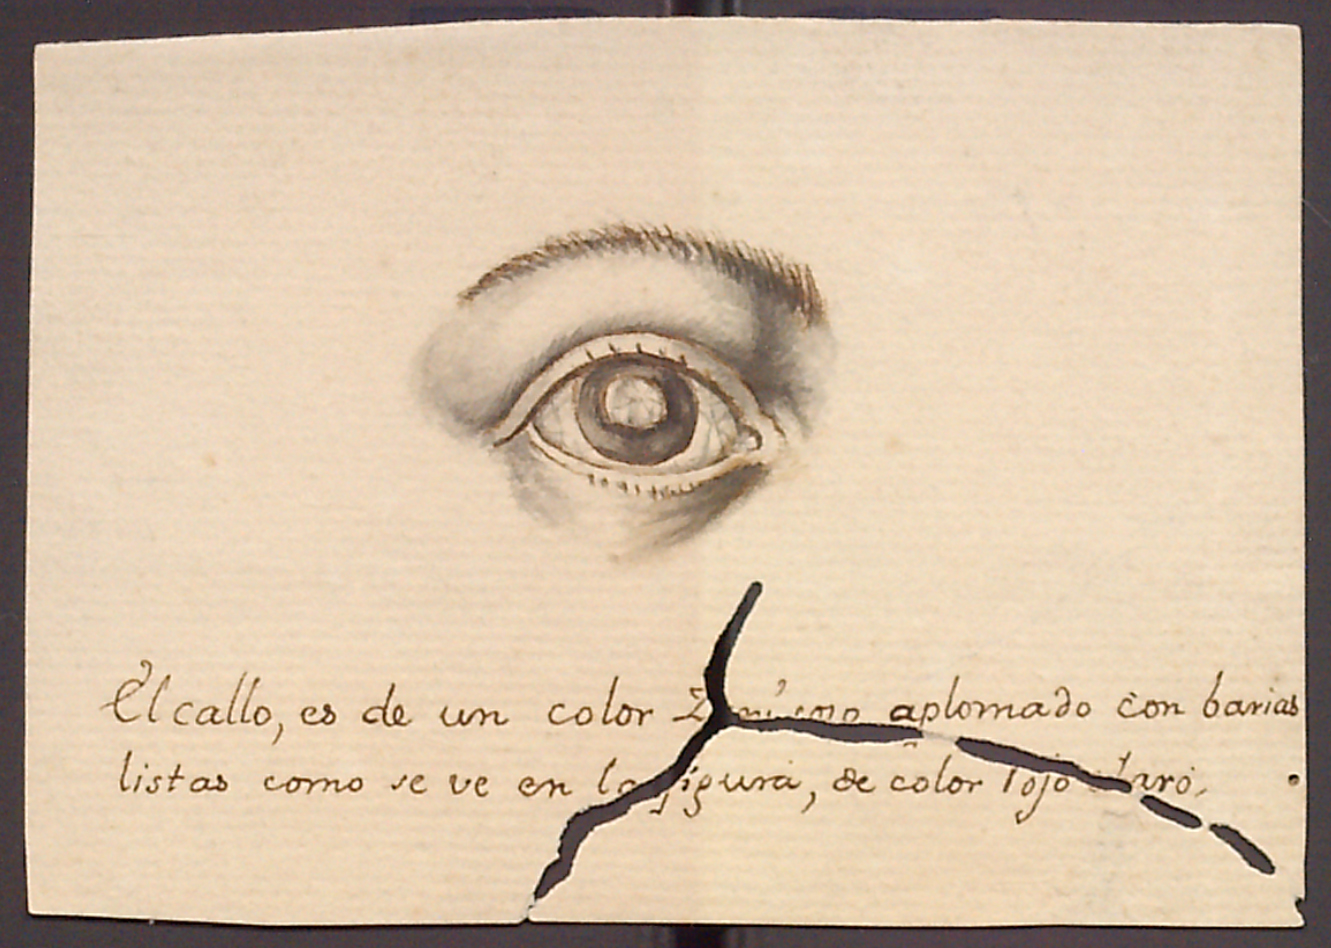 El callo, es de un color aplomado con barias
listas como se ve en la figura, de color rojo claro.